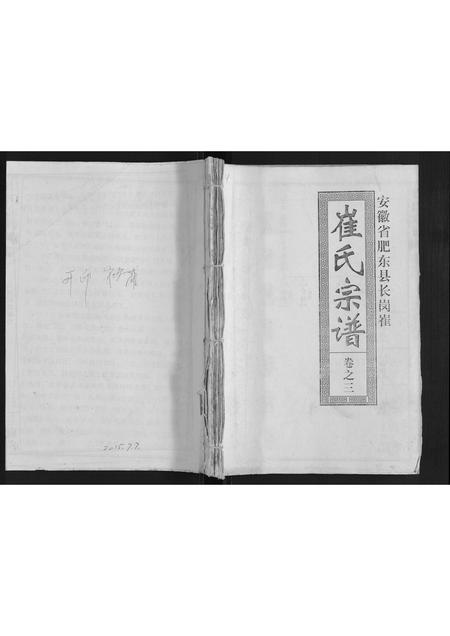 安徽省肥东县长岗崔
崔氏宗谱
卷之三
开印
2015.7.7.